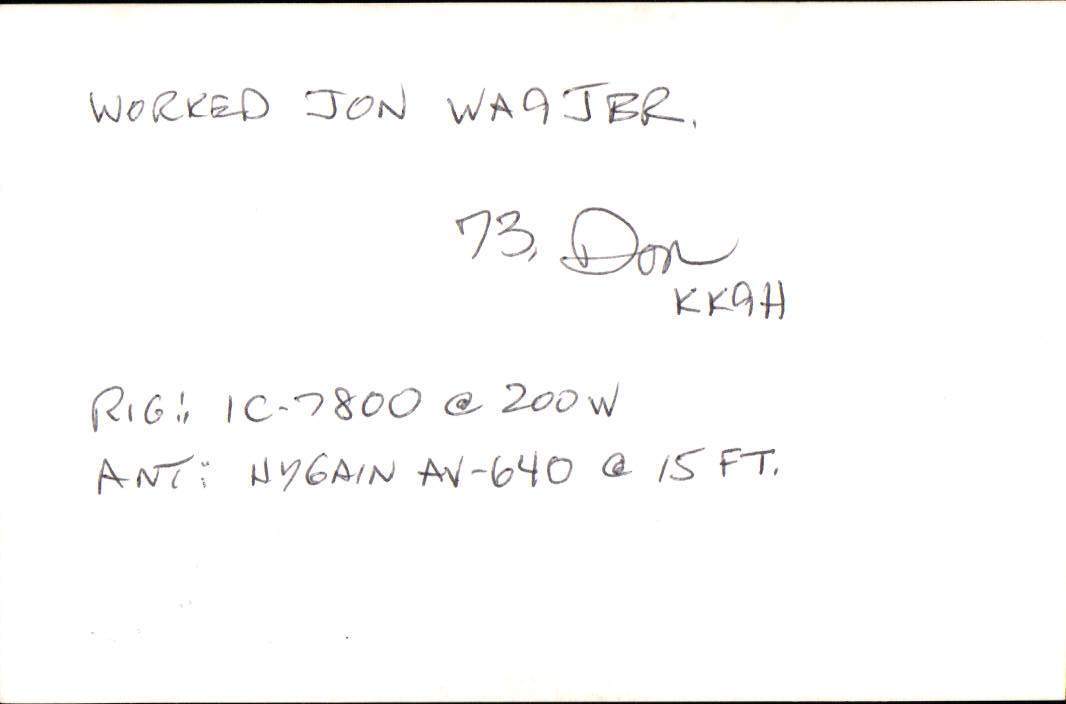 WORKED JON WA9JBR.
73, Don
KK9H
RIG: IC-7800 @ 200W
ANT: HYGAIN AV-640 @ 15 FT.